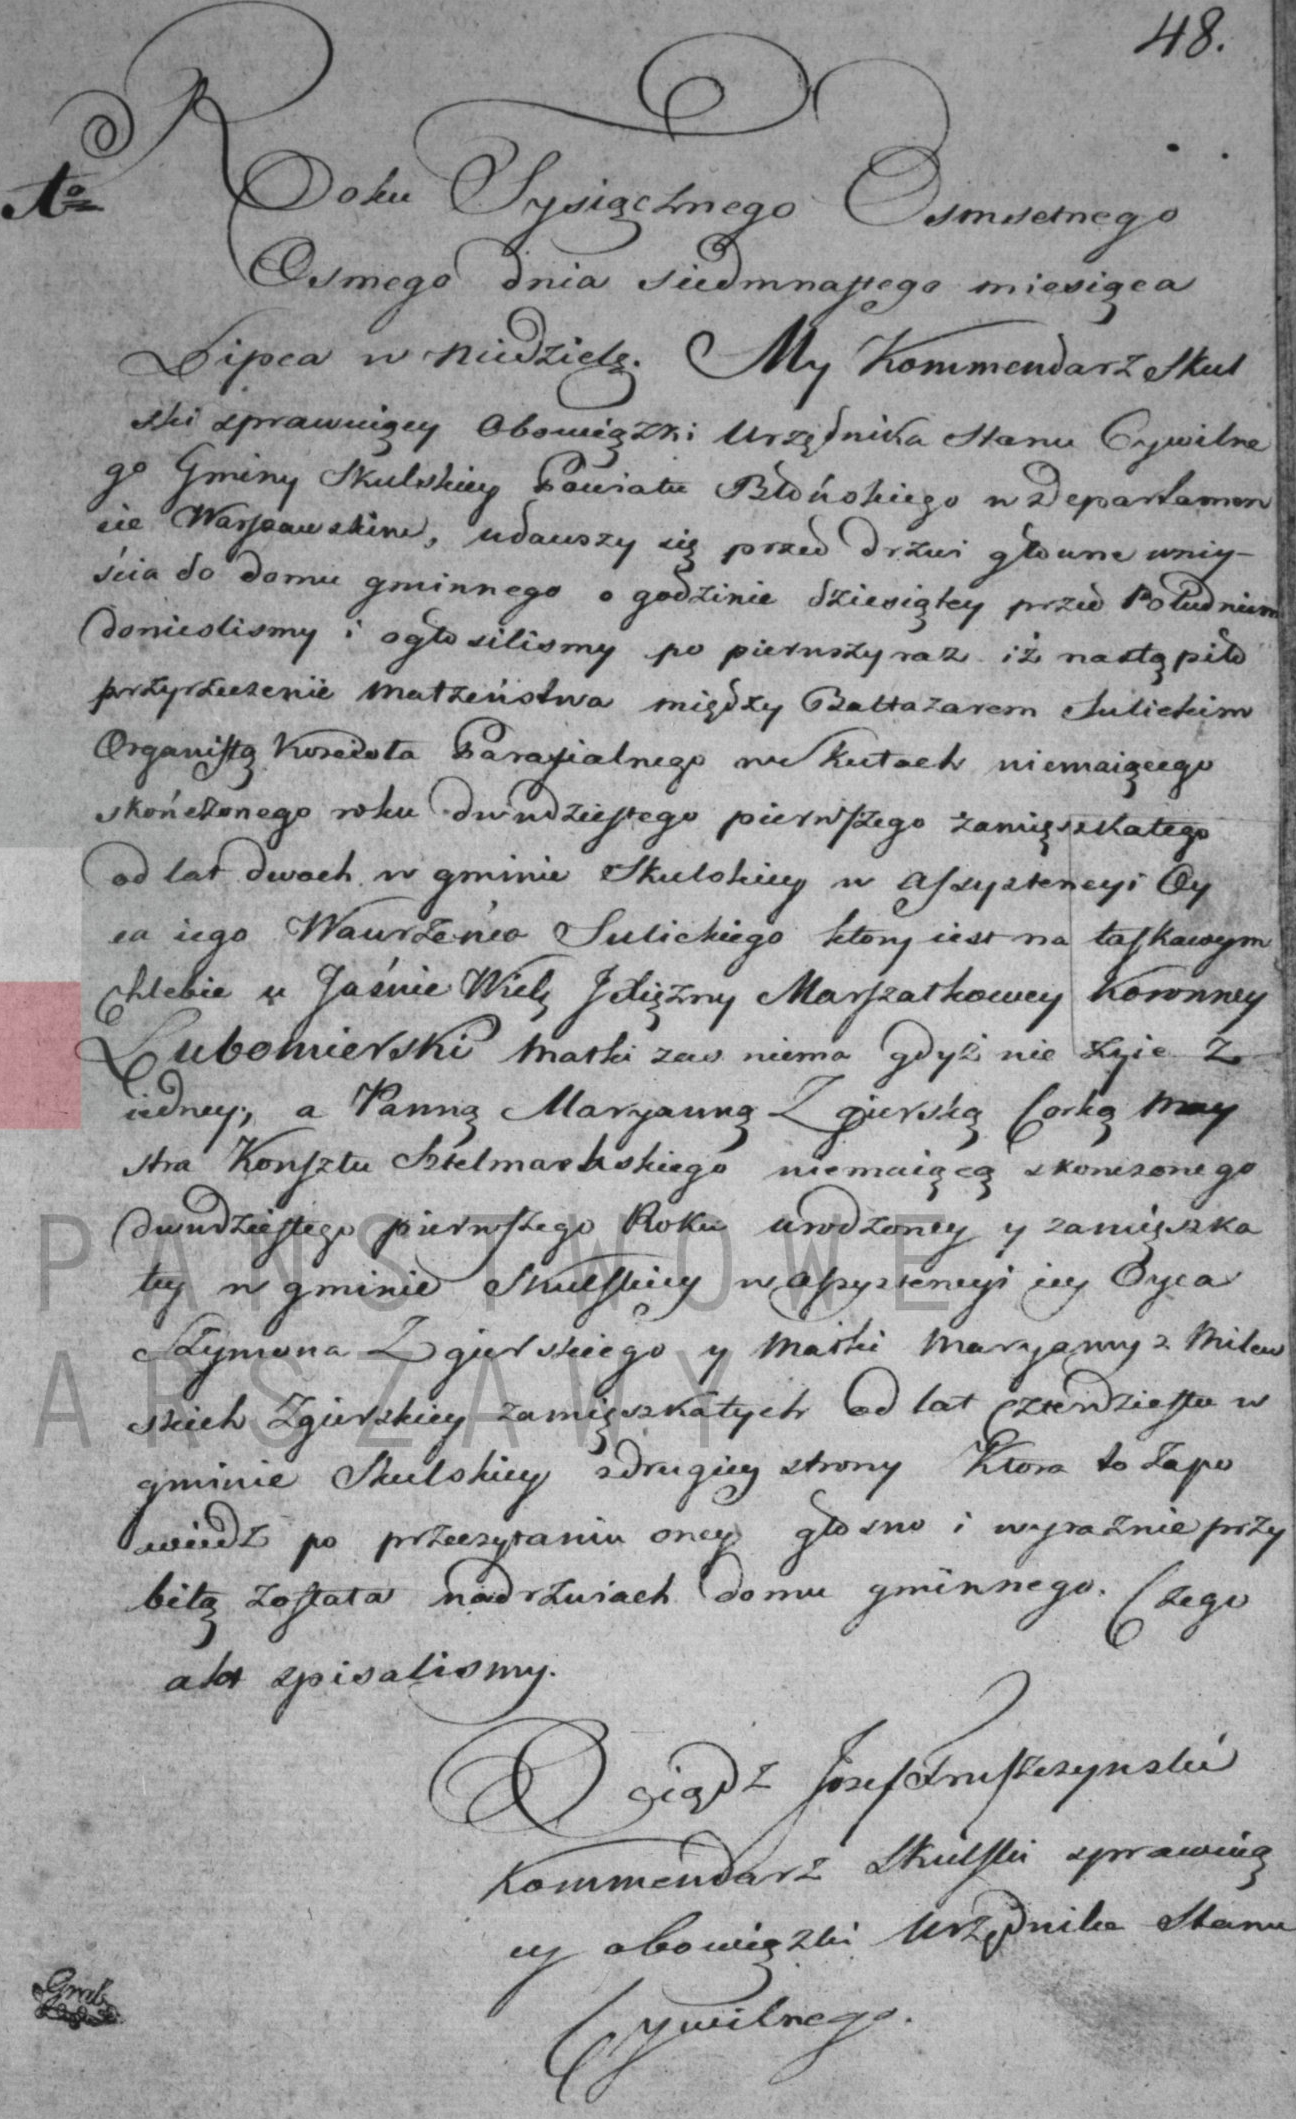 48.
1o
Roku Tysiącznego Osmsetnego
Osmego dnia siedmnastego miesiąca
Lipca w niedzielę. My Kommendarz Skul
ski sprawuiący Obowiązki Urzędnika Stanu Cywilne
go Gminy Skulskiey Powiatu Błońskiego w Departamen
cie Warszawskim, udawszy się przed drzwi głowne wniy-
ścia do domu gminnego o godzinie dziesiątey przed Południem
doniesliśmy i ogłosilismy po pierwszy raz iż nastąpiło
przyrzeczenie małżeństwa między Baltazarem Sulickim
Organistą Kościoła Parafialnego we Skułach niemaiącego
skończonego roku dwudziestego pierwszego zamięszkałego
od lat dwoch w gminie Skulskiey w assystencyi Oy
ca iego Wawrzeńca Sulickiego ktory iest na łaskawym
chlebie u Jaśnie Wielę Xiężny Marszałkowey Koronney
Lubomierski Matki zas niema gdyż nie żyie z
iedney, a Panną Maryanną Zgierską Corką May
stra Konsztu Sztelmachskiego niemaiącą skonczonego
dwudziestego pierwszego Roku urodzoney y zamięszka
łey w gminie Skulskiey w assystencyi iey Oyca
Szymona Zgierskiego y Matki Maryanny z Milew
skich Zgierskiey zamięszkałych od lat czterdziestu w
gminie Skulskiey z drugiey strony Ktora to Zapo
wiedz po przeczytaniu oney głosno i wyraznie przy
bitą została na drzwiach domu gminnego. Czego
akt spisalismy.
Xiądz Josef Truszczynski
Kommendarz Skulski sprawuią
cy obowiązki Urzędnika Stanu
Cywilnego.
PAŃSTWOWE
ARSZAWY